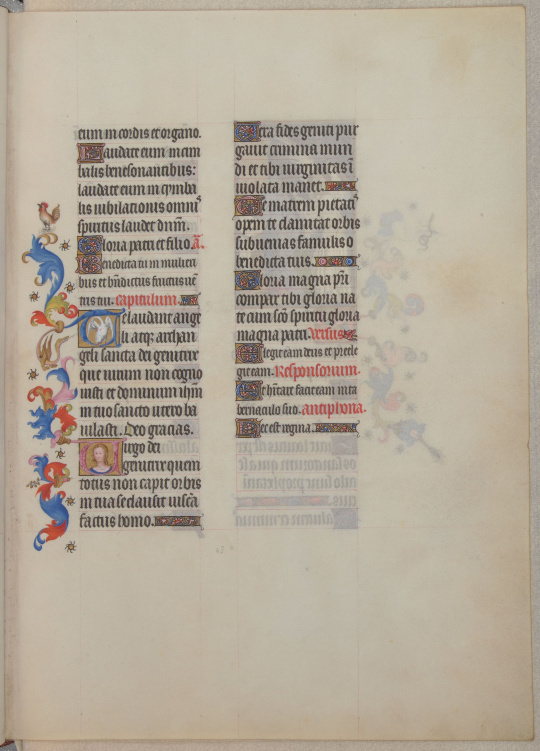 eum in cordis et organo.
Laudate eum in cim
balis benesonantibus:
laudate eum in cymba
lis iubilationis omnis
spiritus laudet dnm.
Gloria patri et filio. A.
Benedicta tu in mulieri
bus et bndictus fructus uen
tris tui. capitulum.
Te laudant ange
li atqz archan
geli sancta dei genitrix
que uirum non cogno
uisti et dominum ihm
in tuo sancto utero ba
iulasti. Deo gracias.
Uirgo dei
genitrix quem
totus non capit orbis
in tua se clausit uiscera
factus homo.
Uera fides geniti pur
gauit crimina mun
di et tibi uirginitas i
uiolata manet.
Te matrem pietatis
opem te clamitat orbis
subuenias famulis o
benedicta tuis.
Gloria magna pri
compar tibi gloria na
te cum sco spiritu gloria
magna patri. Versus
Elegit eam deus et preele
git eam. Responsorium.
Et hitare facit eam in ta
bernaculo suo. antiphona.
Hec est regina.